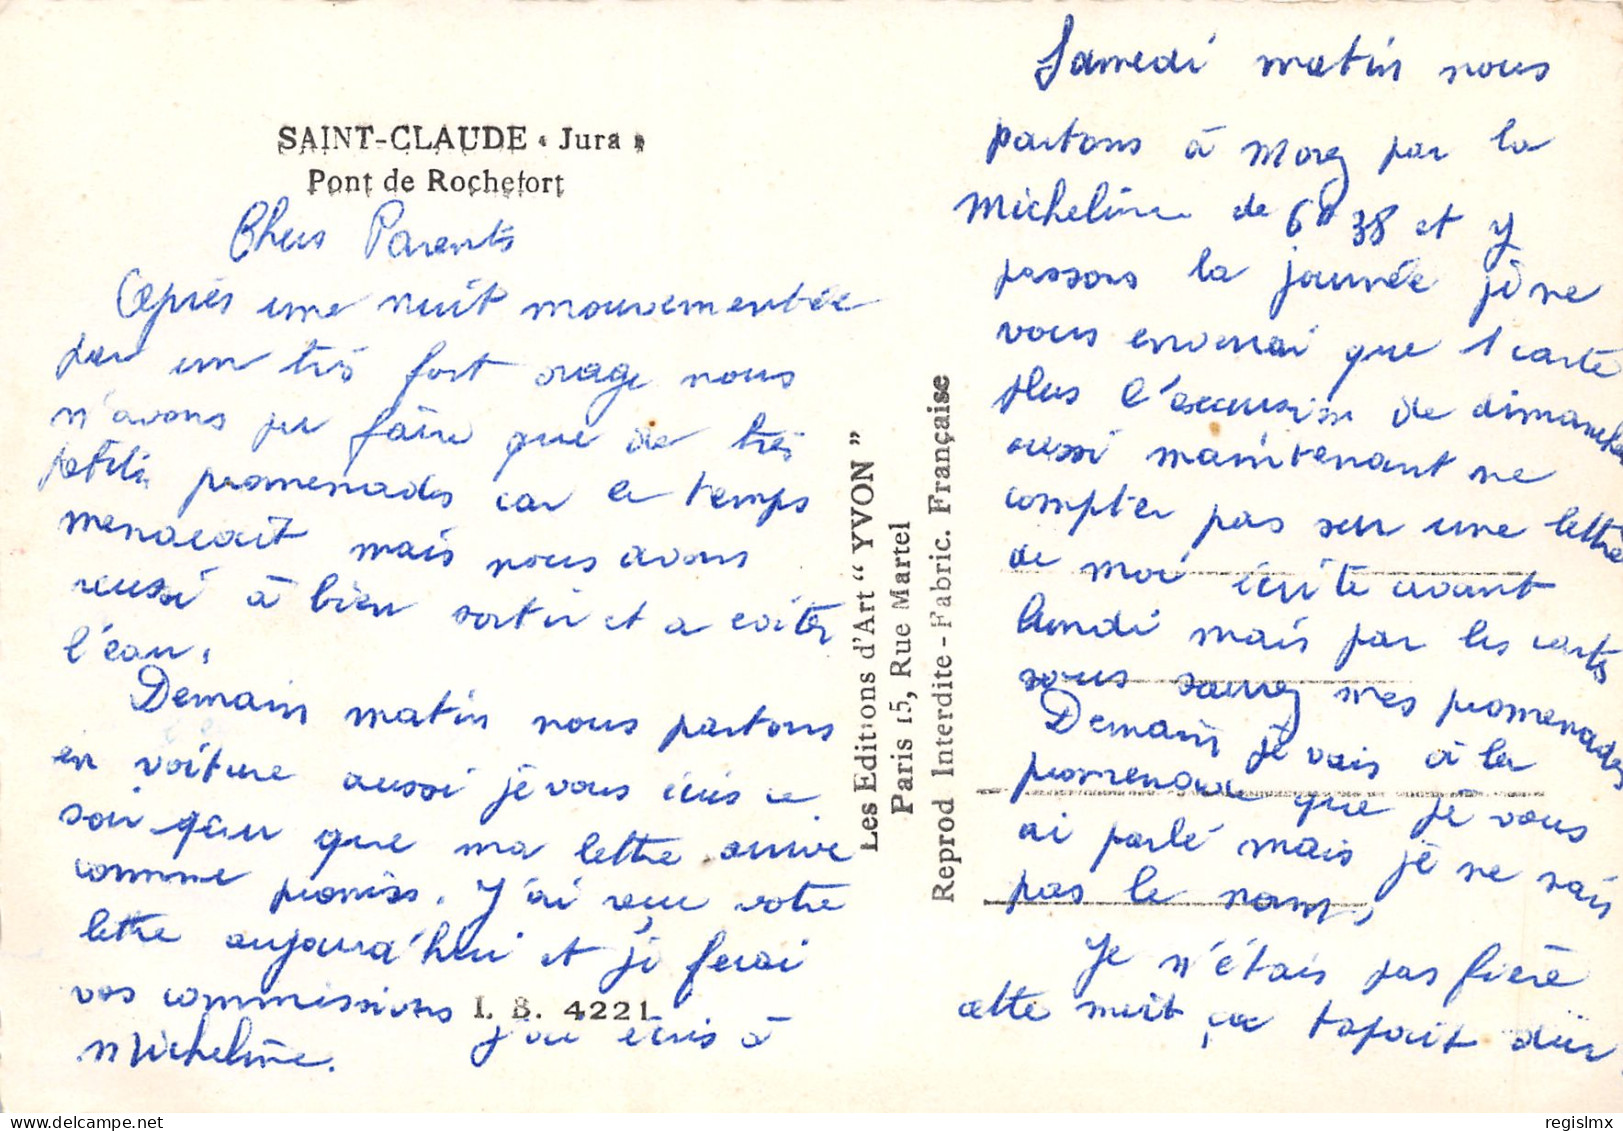 SAINT-CLAUDE « Jura »
Pont de Rochefort
Chers Parents
Après une nuit mouvementée
par un très fort orage nous
n'avons pu faire que de très
petites promenades car le temps
menaçait mais nous avons
reussi à bien sortir et a eviter
l'eau.
Demain matin nous partons
en voiture aussi je vous écris ce
soir que ma lettre arrive
comme promis. J'ai reçu votre
lettre aujourd'hui et je ferai
vos commissions j'ai écris à
Micheline.
I. S. 4221
Les Editions d'Art “ YVON ”
Paris 15, Rue Martel
Reprod Interdite - Fabric. Française
Samedi matin nous
partons à Morez par la
Micheline de 6h 38 et y
passons la journée je ne
vous enverrai que 1 carte
plus l'excursion de dimanche
aussi maintenant ne
compter pas sur une lettre
de moi écrite avant
lundi mais par les cartes
vous saurez mes promenades
Demain je vais à la
promenade que je vous
ai parlé mais je ne sais
pas le nom.
Je n'étais pas fière
cette nuit, ça tapait dur.
regislmx